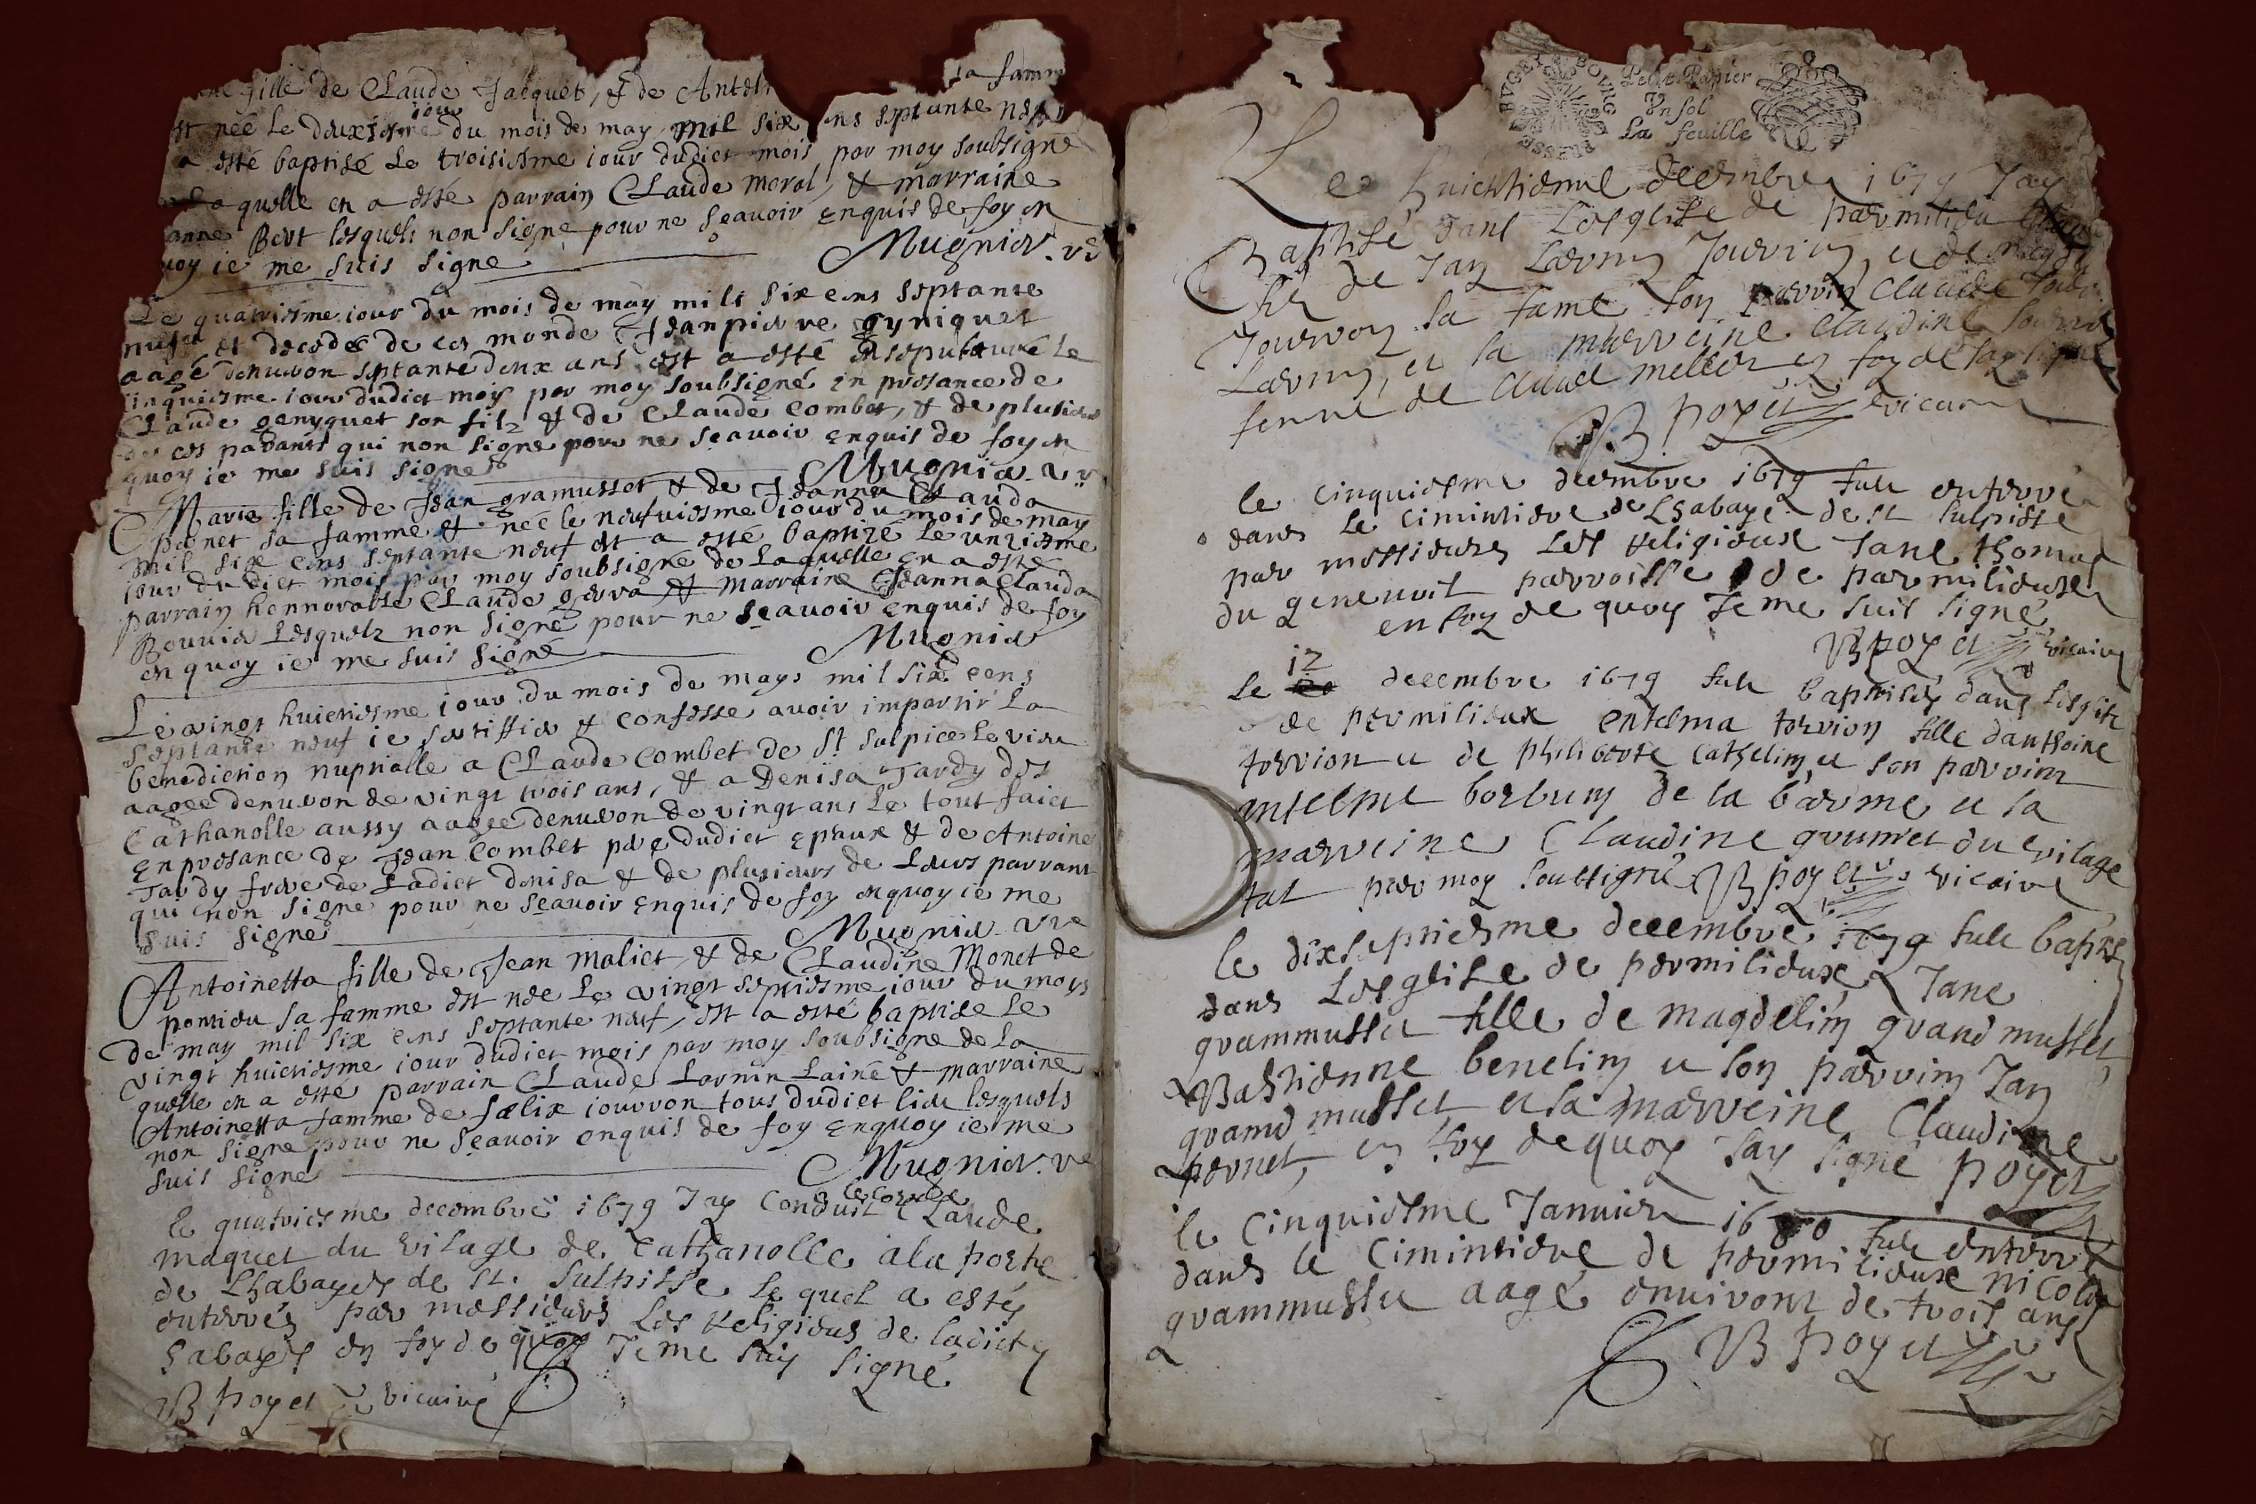 fille de Claude Jacquet, & de Antel
sa famme
est née le deuxiesme iour du mois de may, mil six cens septante neuf
a esté baptisé le troisiesme iour dudict mois par moy soubsigné
de laquelle en a esté parrain Claude moral, & marraine
anne Bert lesquels non signe pour ne sçavoir enquis de foy en
quoy ie me suis signe Mugnier. vre
Le quatriesme iour du mois de may mil six cens septante
neuf est decedée de ces monde Jeanpierre gyniquet
aagé denuiron septante deux ans est a esté ensepulturé le
cinquiesme iour dudict mois par moy soubsigné en presance de
Claude genyquet son filz & de Claude Combet, & de plusieurs
de ces parants qui non signe pour ne sçavoir enquis de foy en
quoy ie me suis signe Mugnier vre
Marie fille de Jean gramusset & de Jeanna Clauda
pernet sa famme est née le neufuiesme iour du mois de may
mil six cens septante neuf est a esté baptizé le unziesme
iour dudict mois par moy soubsigné de laquelle en a esté
parrain honnorable Claude gerra & marraine Jeanna Clauda
Bouvier lesquelz non signé pour ne sçavoir enquis de foy
en quoy ie me suis signé Mugnier
Le vingt huictiesme iour du mois de mays mil six cens
septante neuf ie sertiffie & confesse avoir impartir la
benediction nuptialle a Claude Combet de St sulpice le vieu
aagée denuiron de vingt trois ans, & a Denisa Tardy des
Cathanolle aussy aagée denuiron de vingt ans le tout faict
en presance de Jean Combet pere dudict epoux & de Antoine
Tardy frere de ladict denisa & de plusieurs de leurs parrant
qui non signe pour ne sçavoir enquis de foy en quoy ie me
suis signe Mugnier vre
Antoinetta fille de Jean moliet & de Claudine Monet de
pomieu sa famme est née le vingt septiesme iour du moys
de may mil six cens septante neuf, est a esté baptisée le
vingt huictiesme iour dudict mois par moy soubsigné de la
quelle en a esté parrain Claude Lornin Lainé & marraine
Antoinetta famme de fælix iouvron tous dudict lieu lesquels
non signe pour ne sçavoir enquis de foy en quoy ie me
suis signe Mugnier. vre
le quatriesme decembre 1679 Jay Conduit le corp de Claude
maquet du vilage de Cathanolle a la porte
de Lhabayes de St. Sulpisse le quel a estés
enterrés par messieurs Les Religieus de ladicte
habayes en foy de quoy Je me suis signé
B poyet vicaire
BUGEY BOURG BRESSE
Petit Papier
Un sol
La feuille
Le huictienme decembre 1679 Jay
Baptisé dans Lesglise de parmilieu
fils de Jan Larnin Jourin, et de
Jourvon sa fame son parrin Claude
Larnin, et sa marreine Claudine
fenne de Claude mellet en foy de
B poyet vicaire
le cinquiesme decembre 1679 fute enterré
dans le cimintiere de Lhabaye de st sulpisse
par messieurs Les Religieux Jane thomas
du genevoit parroisse de parmilieux
en foy de quoy Je me suis signé
B poyet vicaire
le 12 decembre 1679 fute baptisés dans lesglise
de parmilieux entelma torvion fille danthoine
torvion et de philiberte Cathelin et son parvint
entelme borbuns de la barme et la
marreine Claudine grumet du vilage
fat par moy soubsigné B poyet vicaire
le dixseptiesme decembre 1679 fute baptisé
dans Lesglise de parmilieux Jane
grammusset fille de magdelin grand musset
et Bastienne benelin et son parvin Jan
grand musset et la marreine Claudine
pernet, en foy de quoy Jay signé poyet
le cinquiesme Januier 1680 fute enterré
dans le cimintiere de parmilieux nicolas
grammusset aagé enuiront de trois ans
B poyet